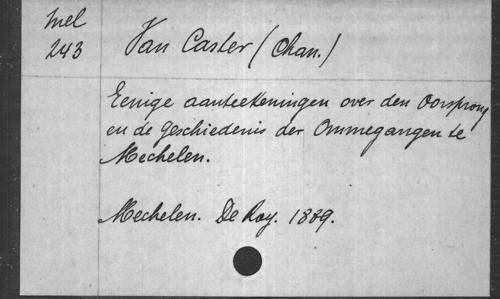 Mel
243
Van Caster (Chan.)
Eenige aanteekeningen over den Oorsprong
en de geschiedenis der Ommegangen te
Mechelen.
Mechelen. De Roy. 1889.